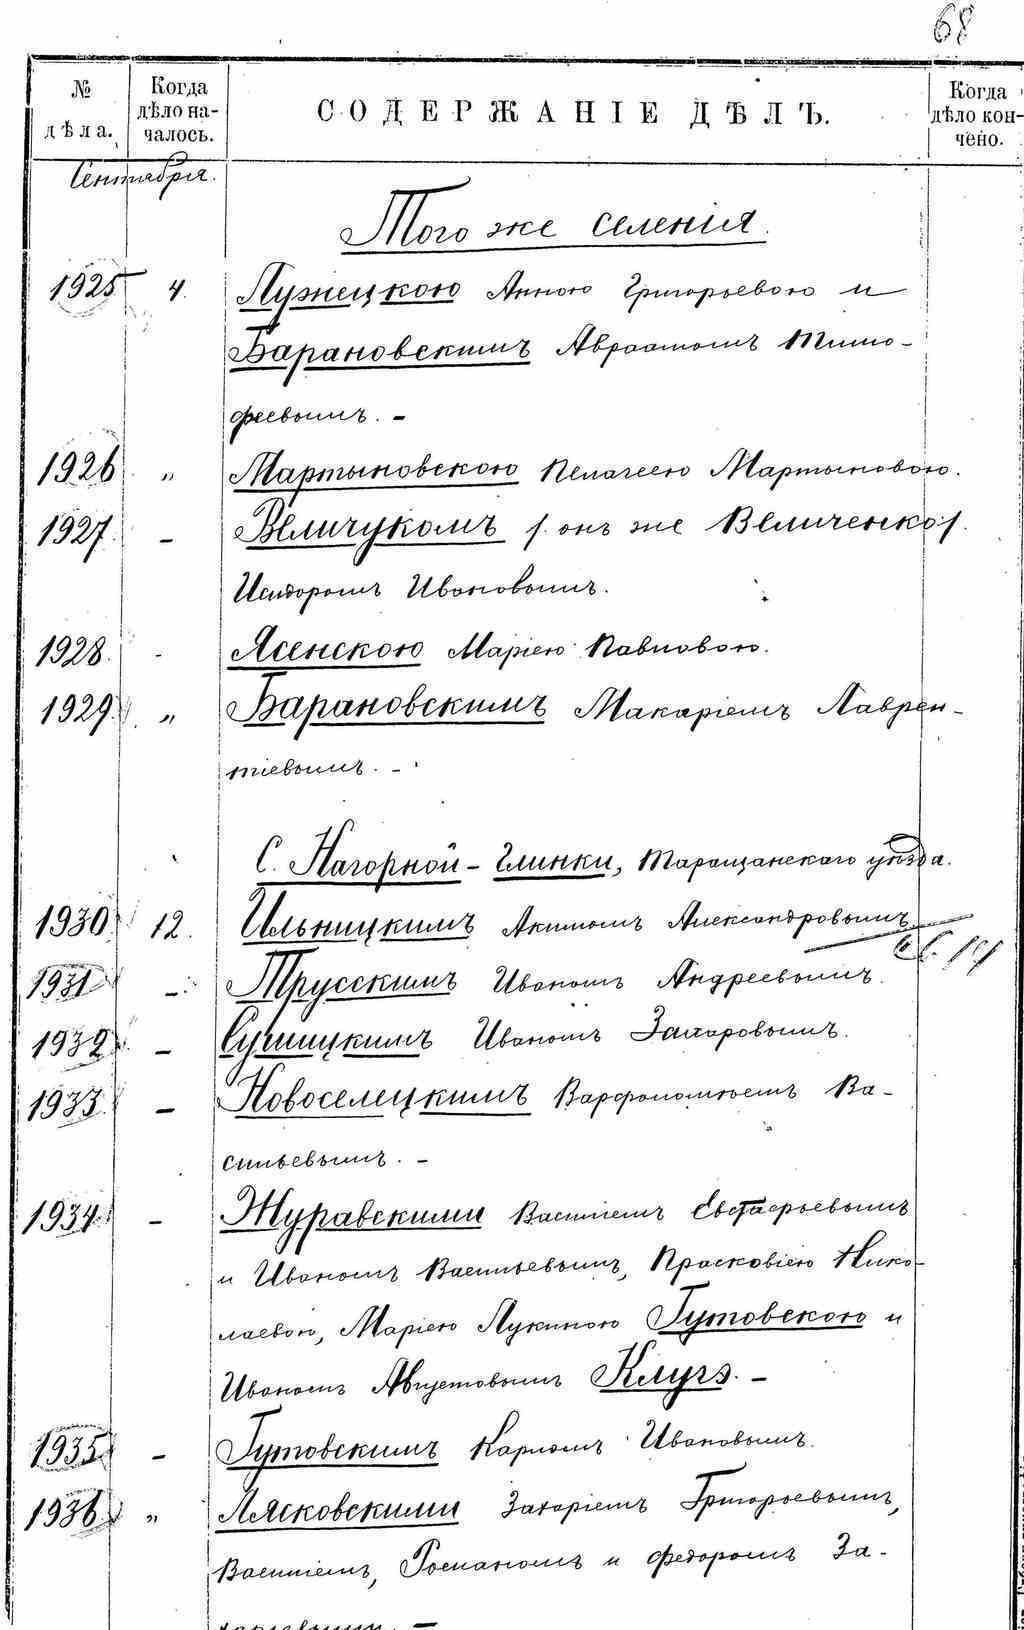 68
№ дѣла.
Когда дѣло началось.
СОДЕРЖАНІЕ ДѢЛЪ.
Когда дѣло кончено.
Сентября.
Того же селенія.
1925 4. Лужецкою Анною Григорьевою и
Барановскимъ Авраамомъ Тимо-
феевымъ. –
1926 „ Мартыновскою Пелагеею Мартыновою.
1927. – Величукомъ /. онъ же Величенко /.
Исидоромъ Ивановымъ.
1928. - Ясенскою Маріею Павловою.
1929. „ Барановскимъ Макаріемъ Лаврен-
тіевымъ. –
С. Нагорной-Глинки, Таращанскаго уѣзда.
1930 12. Ильницкимъ Акимомъ Александровымъ
1931 – Трусскимъ Иваномъ Андреевымъ.
1932 – Сушицкимъ Иваномъ Захаровымъ.
1933. – Новоселецкимъ Варфоломѣемъ Ва-
сильевымъ. –
1934. – Журавскими Василіемъ Евстафьевымъ
и Иваномъ Васильевымъ, Прасковіею Нико-
лаевою, Маріею Лукиною Гутовскою и
Иваномъ Августовымъ Клугэ. –
1935 – Гутовскимъ Карпомъ Ивановымъ.
1936 „ Лясковскими Захаріемъ Григорьевымъ,
Василіемъ, Романомъ и Федоромъ За-